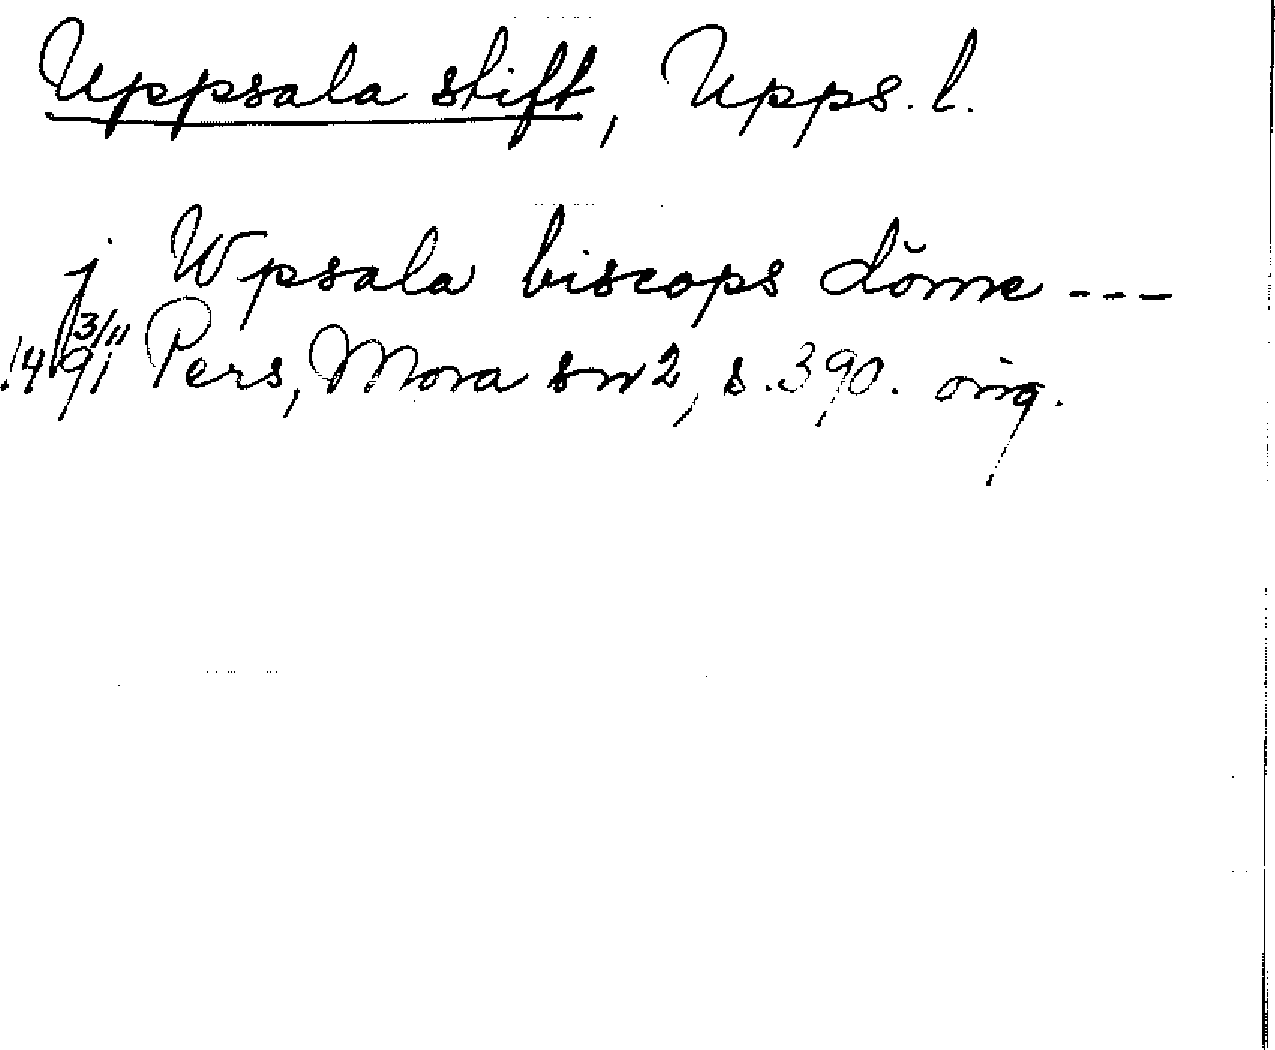 Uppsala stift, Upps. l.
j Wpsala biscops döme ---
1491 3/11 Pers, Mora sn 2, s. 390. orig.